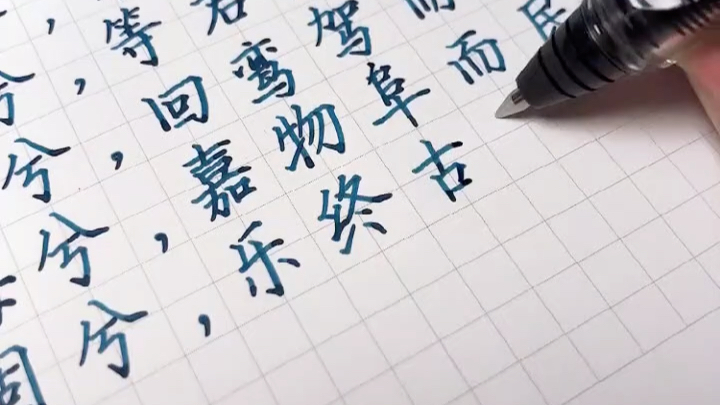 兮，等
兮，回鸾驾
兮，嘉物阜而
周兮，乐终古